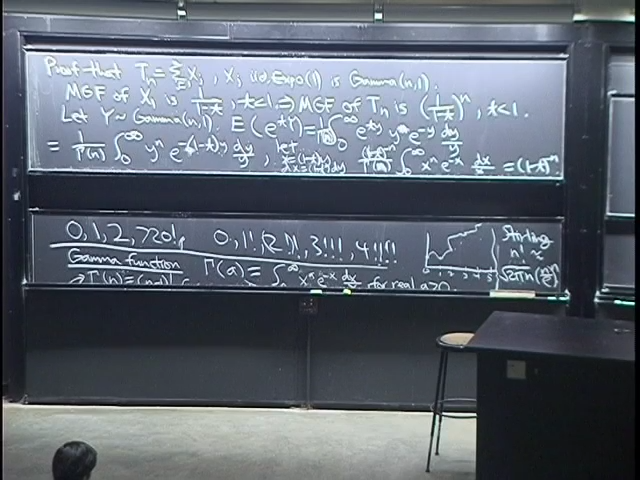 Proof that T_n = Σ X_j, X_j iid Expo(1) is Gamma(n,1).
MGF of X_1 is 1/(1-t), t<1 ⇒ MGF of T_n is (1/(1-t))^n, t<1.
Let Y~Gamma(n,1). E(e^{tY}) = 1/Γ(n) ∫_0^∞ e^{ty} y^n e^{-y} dy/y
= 1/Γ(n) ∫_0^∞ y^n e^{-(1-t)y} dy/y, let x=(1-t)y dx=(1-t)dy (1-t)^{-n}/Γ(n) ∫_0^∞ x^n e^{-x} dx/x = (1-t)^{-n}
0, 1, 2, 720!, 0, 1!, 2!!, 3!!!, 4!!!!
Stirling n! ≈ √(2πn) (n/e)^n
Gamma function Γ(a) = ∫_0^∞ x^a e^{-x} dx/x for real a>0.
→ Γ(n) = (n-1)!